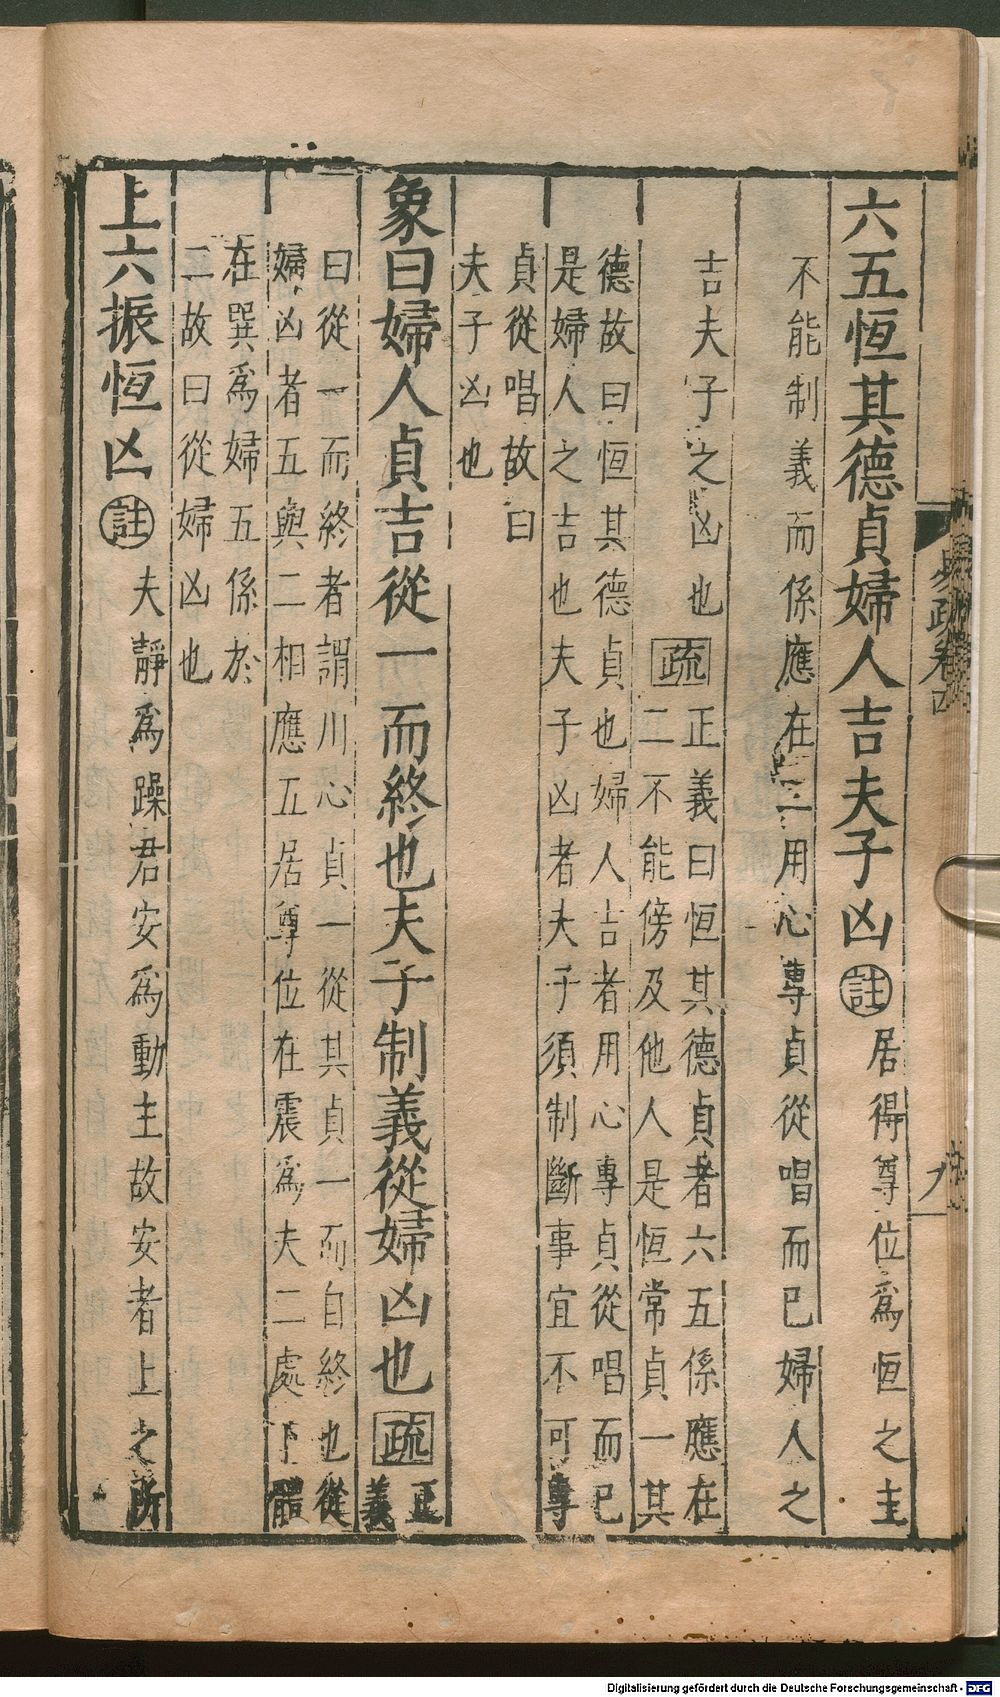 六五恆其德貞婦人吉夫子凶註居得尊位爲恆之主
不能制義而係應在二用心專貞從唱而已婦人之
吉夫子之凶也疏正義曰恆其德貞者六五係應在
二不能傍及他人是恆常貞一其
德故曰恆其德貞也婦人吉者用心專貞從唱而已
是婦人之吉也夫子凶者夫子須制斷事宜不可專
貞從唱故曰
夫子凶也
象曰婦人貞吉從一而終也夫子制義從婦凶也疏正
義
曰從一而終者謂用心貞一從其貞一而自終也從
婦凶者五與二相應五居尊位在震爲夫二處下體
在巽爲婦五係於
二故曰從婦凶也
上六振恆凶註夫靜爲躁君安爲動主故安者上之所
Digitalisierung gefördert durch die Deutsche Forschungsgemeinschaft - DFG